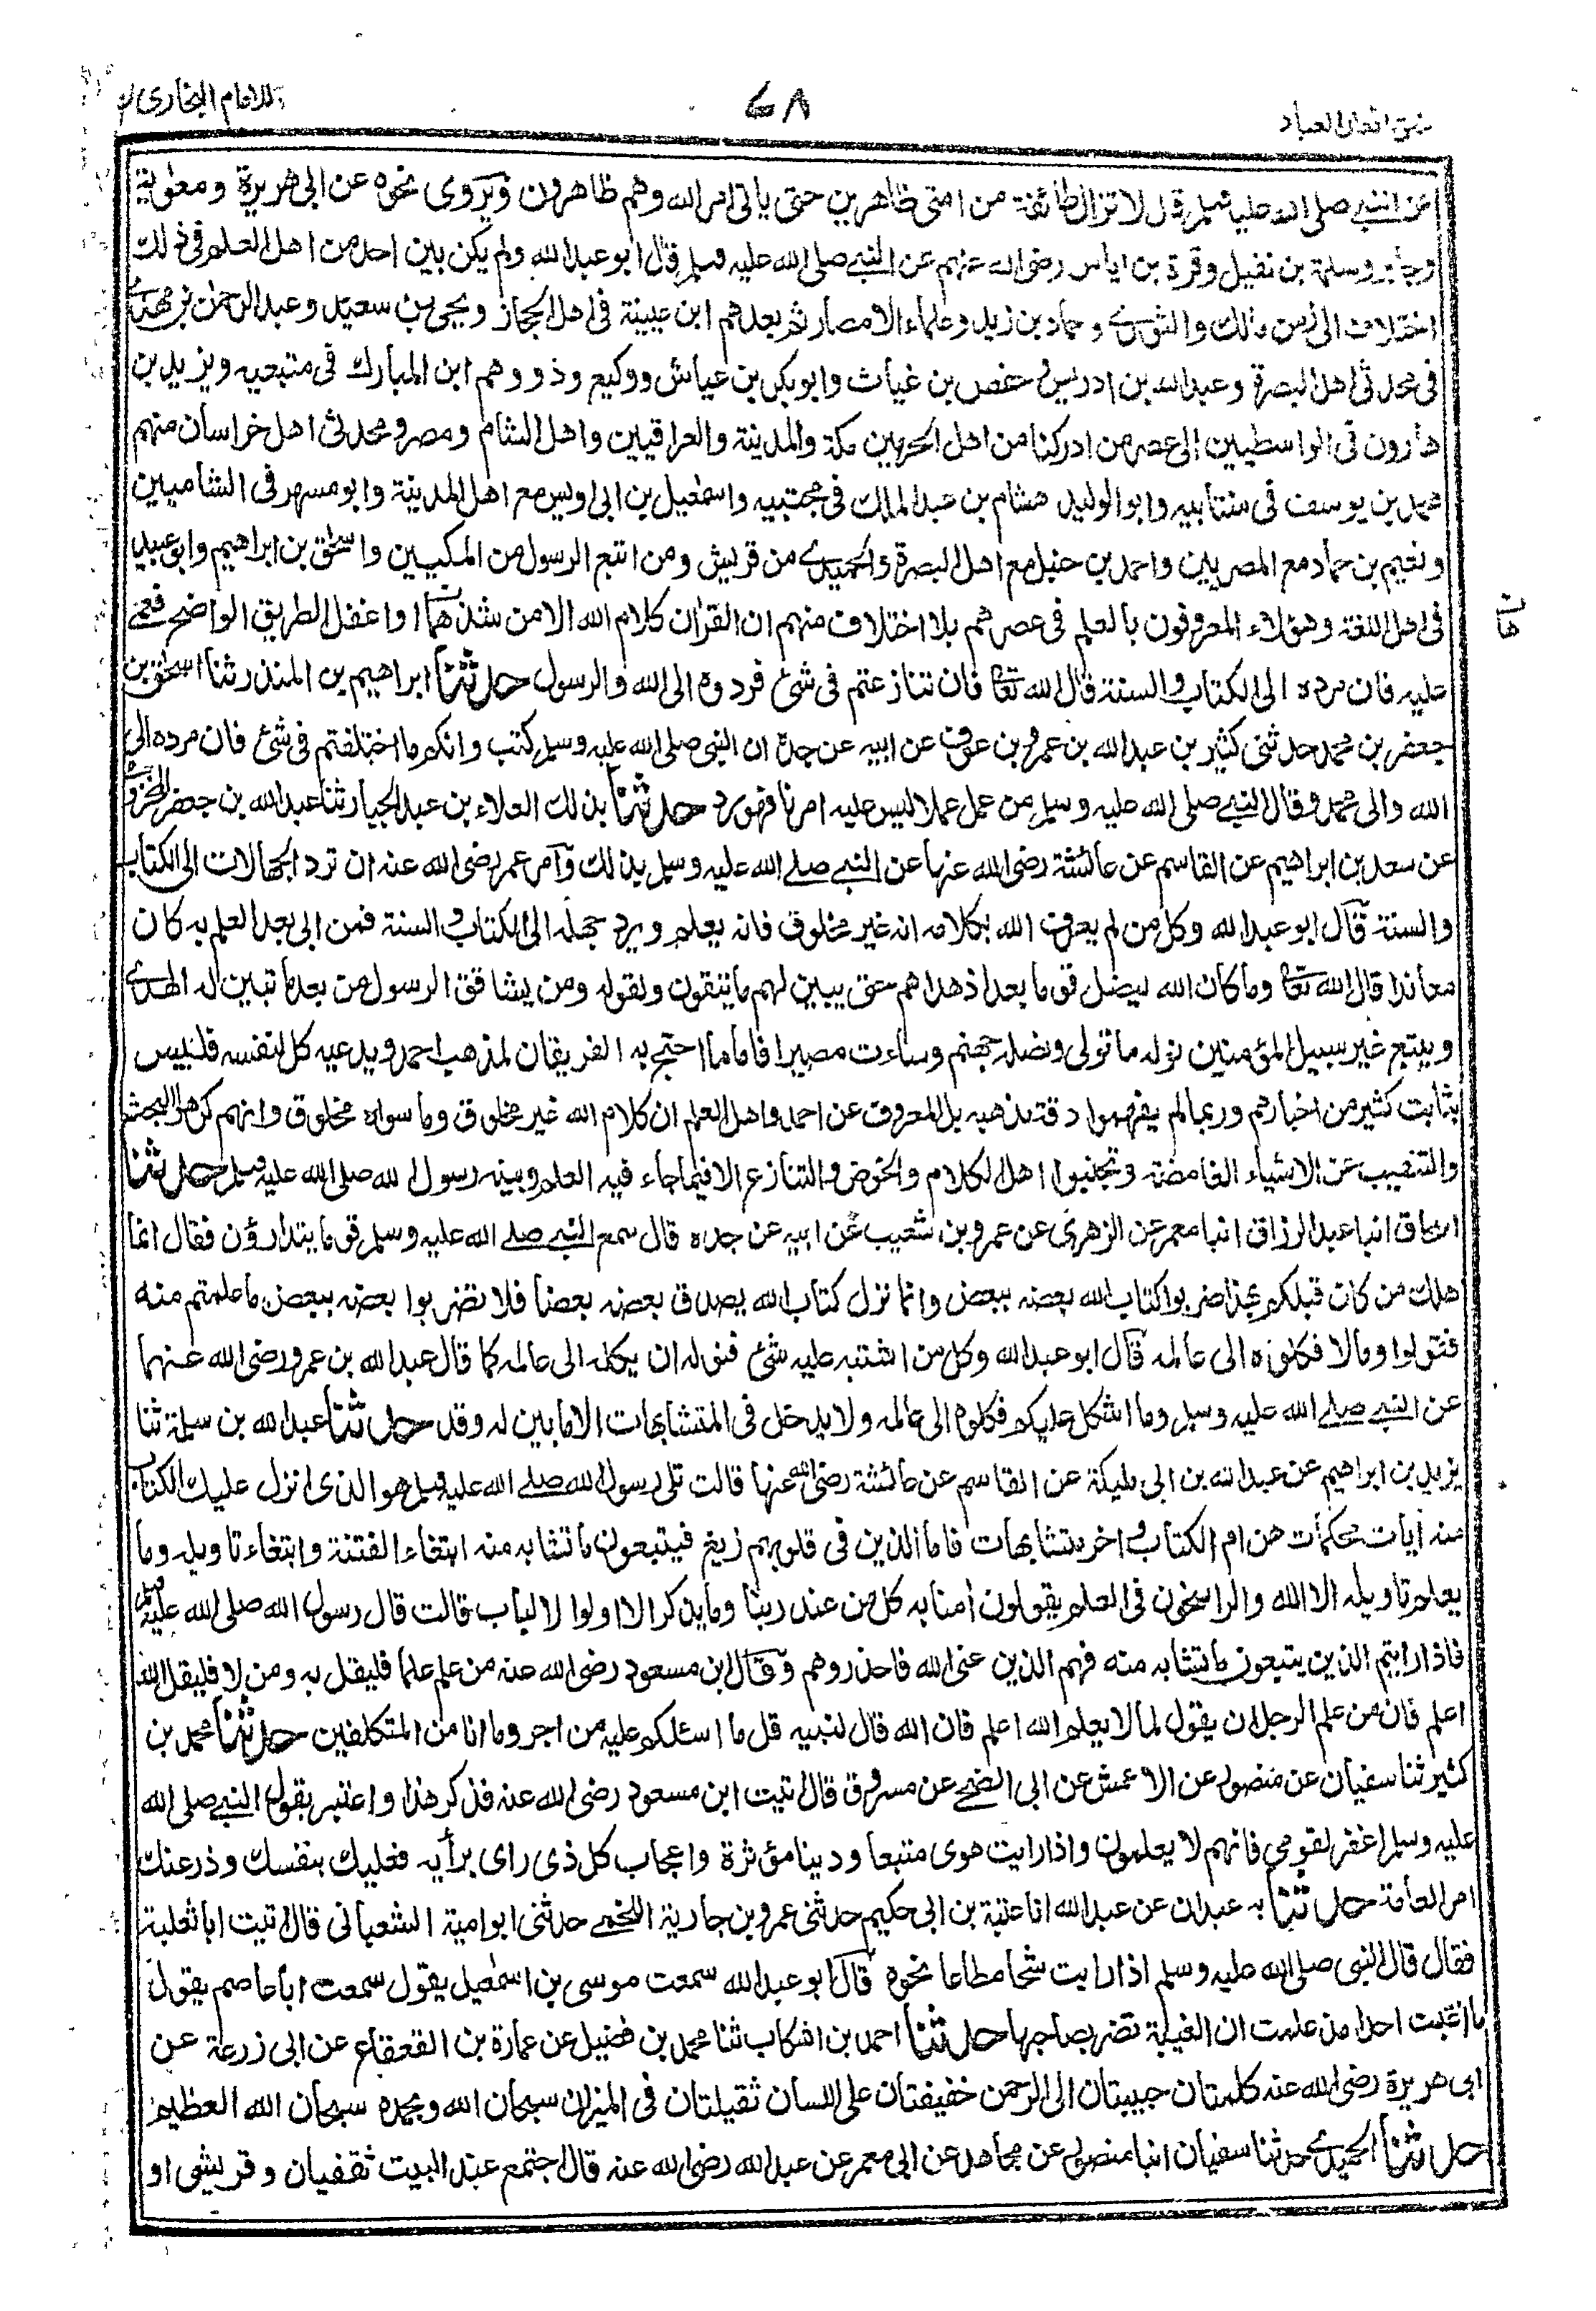 خلق افعال العباد
٦٨
للامام البخاري
عن النبي صلى الله عليه وسلم قال لا تزال طائفة من امتي ظاهرين حتى ياتي امر الله وهم ظاهرون ويروى نحوه عن ابي هريرة ومعوية
وجابر وسلمة بن نفيل وقرة بن اياس رضي الله عنهم عن النبي صلى الله عليه وسلم قال ابو عبد الله ولم يكن بين احد من اهل العلم في ذلك
اختلاف الى زمن مالك والثوري وحماد بن زيد وعلماء الامصار ثم بعدهم ابن عيينة في اهل الحجاز ويحيى بن سعيد وعبد الرحمن بن مهدي
في محدثي اهل البصرة وعبد الله بن ادريس وحفص بن غياث وابو بكر بن عياش ووكيع وذووهم ابن المبارك في متبعيه ويزيد بن
هارون في الواسطيين الى عصر من ادركنا من اهل الحرمين مكة والمدينة والعراقيين واهل الشام ومصر ومحدثي اهل خراسان منهم
محمد بن يوسف في منتابيه وابو الوليد هشام بن عبد الملك في مجتبيه واسمعيل بن ابي اويس مع اهل المدينة وابو مسهر في الشاميين
ونعيم بن حماد مع المصريين واحمد بن حنبل مع اهل البصرة والحميدي من قريش ومن اتبع الرسول من المكيين واسحق بن ابراهيم وابو عبيد
في اهل اللغة وهؤلاء المعروفون بالعلم في عصرهم بلا اختلاف منهم ان القران كلام الله الا من شذ بها او اغفل الطريق الواضح فعمي
هان
عليه فان مرده الى الكتاب والسنة قال الله تعا فان تنازعتم في شئ فردوه الى الله والرسول حدثنا ابراهيم بن المنذر ثنا اسحق بن
جعفر بن محمد حدثني كثير بن عبد الله بن عمرو بن عوف عن ابيه عن جده ان النبي صلى الله عليه وسلم كتب وانكم ما اختلفتم في شئ فان مرده الى
الله والى محمد وقال النبي صلى الله عليه وسلم من عمل عملا ليس عليه امرنا فهو رد حدثنا بذلك العلاء بن عبد الجبار ثنا عبد الله بن جعفر المخرمي
عن سعد بن ابراهيم عن القاسم عن عائشة رضي الله عنها عن النبي صلى الله عليه وسلم بذلك وأمر عمر رضي الله عنه ان ترد الجهالات الى الكتاب
والسنة قال ابو عبد الله وكل من لم يعرف الله بكلامه انه غير مخلوق فانه يعلم ويرد جهله الى الكتاب والسنة فمن ابى بعد العلم به كان
معاندا قال الله تعا وما كان الله ليضل قوما بعد اذ هداهم حتى يبين لهم ما يتقون ولقوله ومن يشاقق الرسول من بعد ما تبين له الهدى
ويتبع غير سبيل المؤمنين نوله ما تولى ونصله جهنم وساءت مصيرا فاما ما احتج به الفريقان لمذهب احمد ويدعيه كل لنفسه فليس
بثابت كثير من اخبارهم وربما لم يفهموا دقة مذهبه بل المعروف عن احمد واهل العلم ان كلام الله غير مخلوق وما سواه مخلوق وانهم كرهوا البحث
والتنقيب عن الاشياء الغامضة وتجنبوا اهل الكلام والخوض والتنازع الا فيما جاء فيه العلم وبينه رسول الله صلى الله عليه وسلم حدثنا
اسحاق انبا عبد الرزاق انبا معمر عن الزهري عن عمرو بن شعيب عن ابيه عن جده قال سمع النبي صلى الله عليه وسلم قوما يتدارؤن فقال انما
هلك من كان قبلكم بهذا ضربوا كتاب الله بعضه ببعض وانما نزل كتاب الله يصدق بعضه بعضا فلا تضربوا بعضه ببعض ما علمتم منه
فقولوا وما لا فكلوه الى عالمه قال ابو عبد الله وكل من اشتبه عليه شئ فنوله ان يكله الى عالمه كما قال عبد الله بن عمرو رضي الله عنهما
عن النبي صلى الله عليه وسلم وما اشكل عليكم فكلوه الى عالمه ولا يدخل في المتشابهات الا ما بين له وقد حدثنا عبد الله بن سلمة ثنا
يزيد بن ابراهيم عن عبد الله بن ابي مليكة عن القاسم عن عائشة رضي الله عنها قالت تلى رسول الله صلى الله عليه وسلم هو الذي انزل عليك الكتاب
منه آيات محكمات هن ام الكتاب واخر متشابهات فاما الذين في قلوبهم زيغ فيتبعون ما تشابه منه ابتغاء الفتنة وابتغاء تاويله وما
يعلم تاويله الا الله والراسخون في العلم يقولون امنا به كل من عند ربنا وما يذكر الا اولوا الالباب قالت قال رسول الله صلى الله عليه وسلم
فاذا رايتم الذين يتبعون ما تشابه منه فهم الذين عنى الله فاحذروهم وقال ابن مسعود رضي الله عنه من علم علما فليقل به ومن لا فليقل الله
اعلم فان من علم الرجل ان يقول لما لا يعلم الله اعلم فان الله قال لنبيه قل ما اسئلكم عليه من اجر وما انا من المتكلفين حدثنا محمد بن
كثير ثنا سفيان عن منصور عن الاعمش عن ابي الضحى عن مسروق قال اتيت ابن مسعود رضي الله عنه فذكر هذا واعتبر بقول النبي صلى الله
عليه وسلم اغفر لقومي فانهم لا يعلمون واذا رايت هوى متبعا ودينا مؤثرة واعجاب كل ذي راى برأيه فعليك بنفسك وذر عنك
امر العامة حدثنا به عبدان عن عبد الله انا عتبة بن ابي حكيم حدثني عمرو بن جارية اللخمي حدثني ابو امية الشعباني قال اتيت ابا ثعلبة
فقال قال النبي صلى الله عليه وسلم اذا رايت شحا مطاعا نحوه قال ابو عبد الله سمعت موسى بن اسمعيل يقول سمعت ابا عاصم يقول
ما اغتبت احدا منذ علمت ان الغيبة تضر بصاحبها حدثنا احمد بن اشكاب ثنا محمد بن فضيل عن عمارة بن القعقاع عن ابي زرعة عن
ابي هريرة رضي الله عنه كلمتان حبيبتان الى الرحمن خفيفتان على اللسان ثقيلتان في الميزان سبحان الله وبحمده سبحان الله العظيم
حدثنا الحميدي حدثنا سفيان انبا منصور عن مجاهد عن ابي معمر عن عبد الله رضي الله عنه قال اجتمع عند البيت ثقفيان وقريشى او